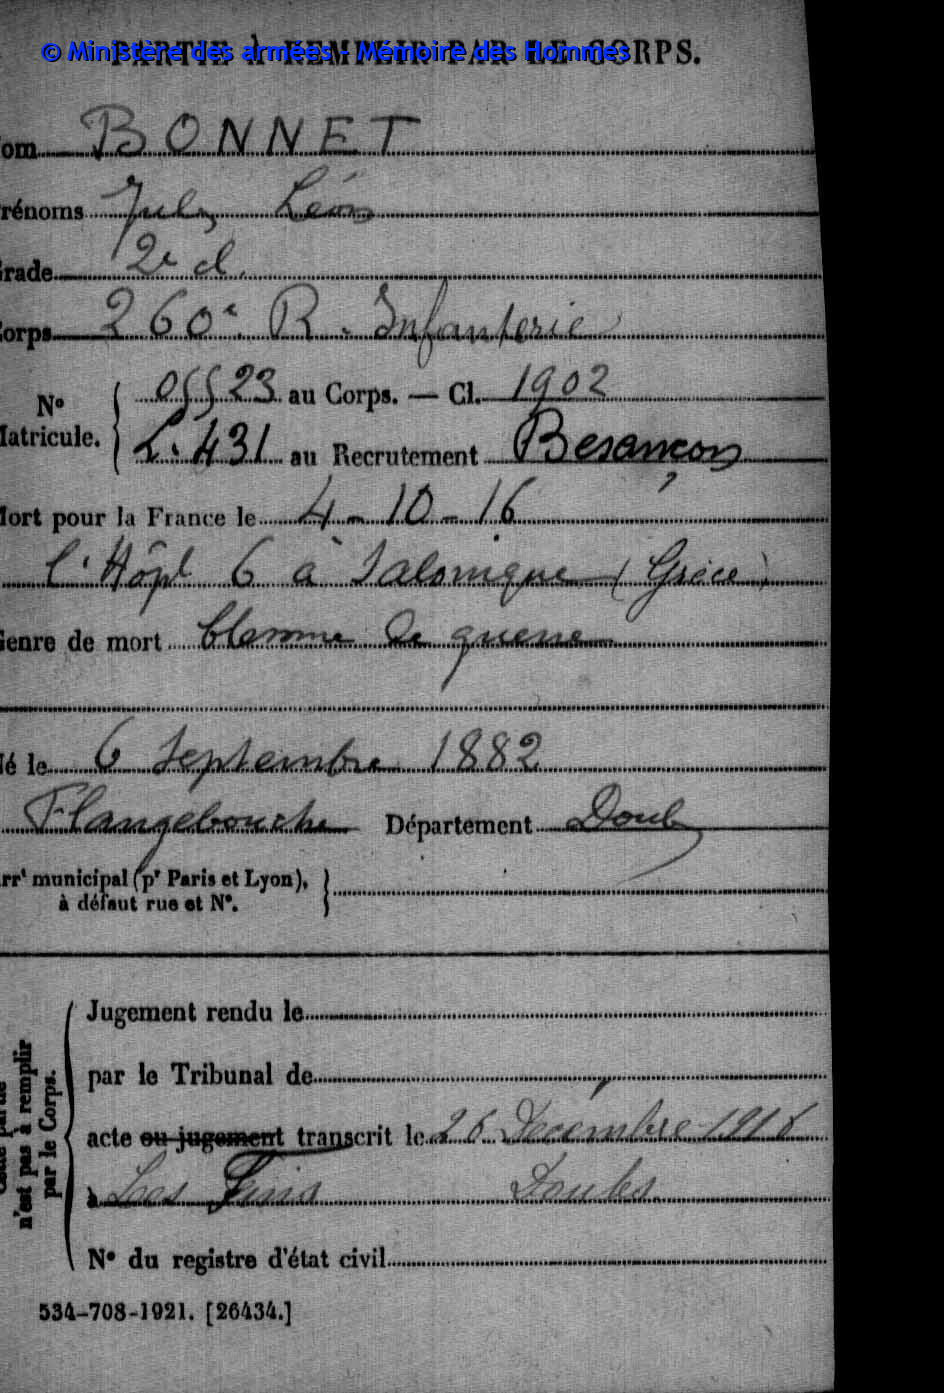 © Ministère des armées - Mémoire des Hommes
PARTIE À REMPLIR PAR LE CORPS.
om BONNET
rénoms Jules Léon
rade 2e cl.
orps 260e R. Infanterie
N° 05523 au Corps. — Cl. 1902
Matricule. L. 431 au Recrutement Besançon
Mort pour la France le 4-10-16
l'Hôpl 6 à Salonique (Grèce)
Genre de mort blessure de guerre
Né le 6 Septembre 1882
Flangebouche Département Doubs
rrt municipal (pr Paris et Lyon),
à défaut rue et N°.
Jugement rendu le
par le Tribunal de
acte ou jugement transcrit le 26 Décembre 1916
à Les Fins Doubs
N° du registre d'état civil
n'est pas à remplir
par le Corps.
534-708-1921. [26434.]